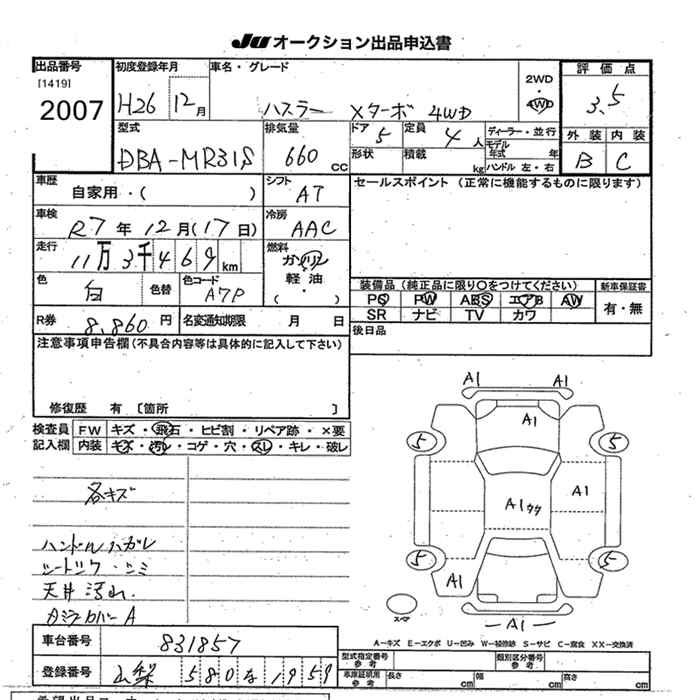 JU オークション出品申込書
出品番号 初度登録年月 車名・グレード 評価点
[1419] 2WD
2007 H26 12月 ハスラー Xターボ 4WD ・ 4WD 3.5
型式 排気量 ドア 定員 ディーラー・並行 外装 内装
DBA-MR31S 660 CC 5 4人 モデル年式 年 B C
形状 積載 kg ハンドル 左・右
車歴 シフト セールスポイント (正常に機能するものに限ります)
自家用・( ) AT
車検 冷房
R7年12月(17日) AAC
走行 燃料
11万3千469km ガソリン
色 色替 色コード 軽油
白 A7P ( ・ )
装備品 (純正品に限り○をつけてください) 新車保証書
PS PW ABS エアB AW 有・無
SR ナビ TV カワ
R券 8,860円 名変通知期限 月 日
後日品
注意事項申告欄(不具合内容等は具体的に記入して下さい)
修復歴 有 [箇所 ]
検査員 FW キズ・飛石・ヒビ割・リペア跡・×要
記入欄 内装 キズ・汚レ・コゲ・穴・スレ・キレ・破レ
各キズ
ハンドルハガレ
シートシワ・シミ
天井汚れ.
A1 A1
A1
5 5
A1 A1
5 5
A1
スペア
—A1—
A—キズ E—エクボ U—凹み W—補修跡 S—サビ C—腐食 XX—交換済
車台番号 831857
型式指定番号 参考 類別区分番号 参考
登録番号 山梨 580 な 1959
車庫証明用 参考 長さ cm 幅 cm 高さ cm